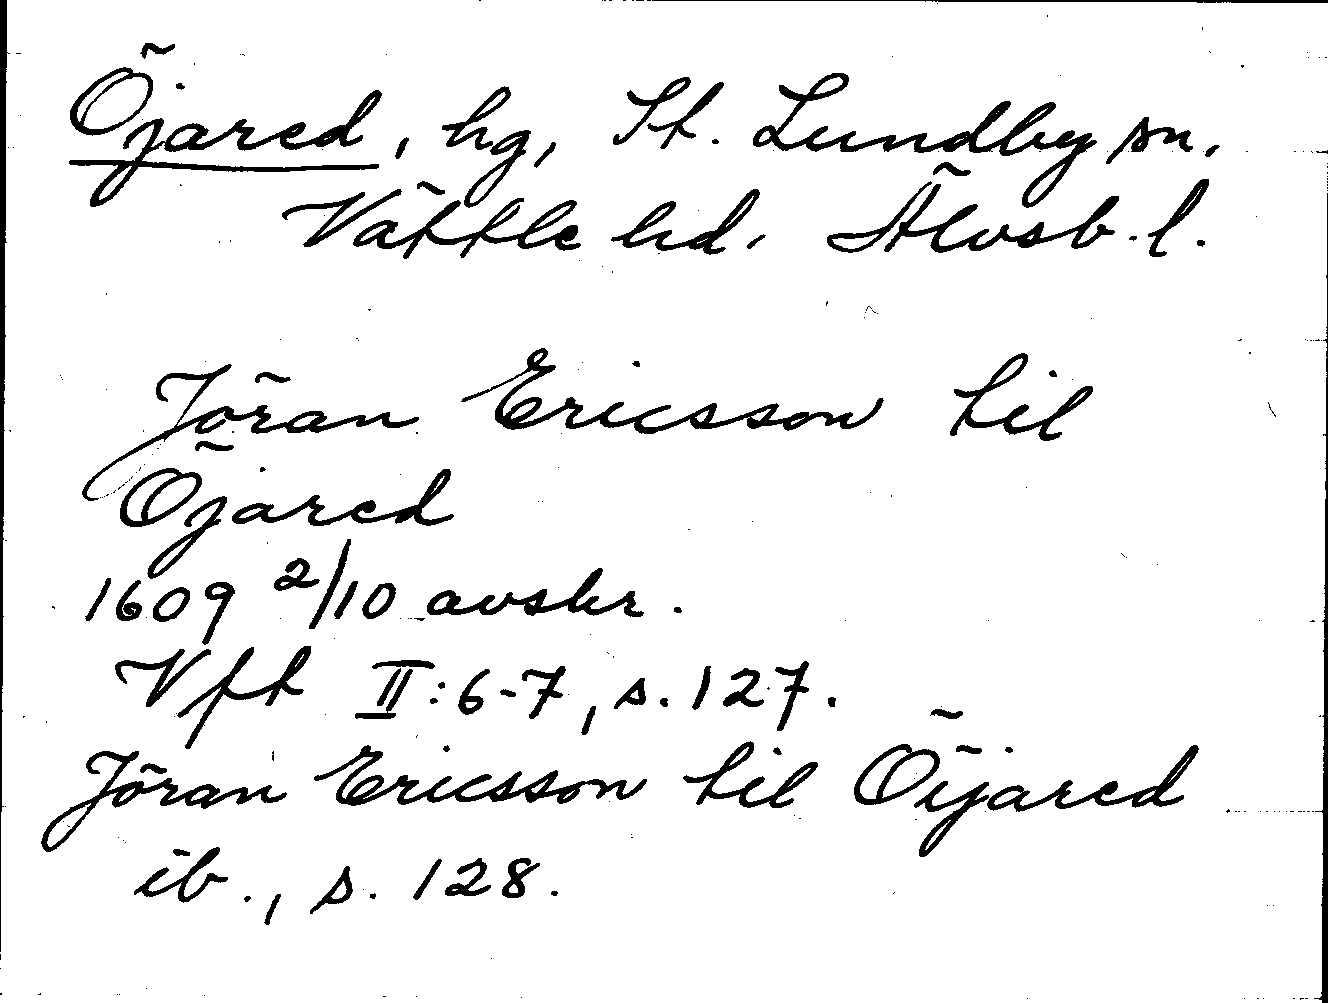 Öjared, hg, St. Lundby sn,
Vättle hd, Älvsb. l.
Jöran Ericsson til
Öjared
1609 2/10 avskr.
Vft II:6-7, s. 127.
Jöran Ericsson til Öijared
ib., s. 128.